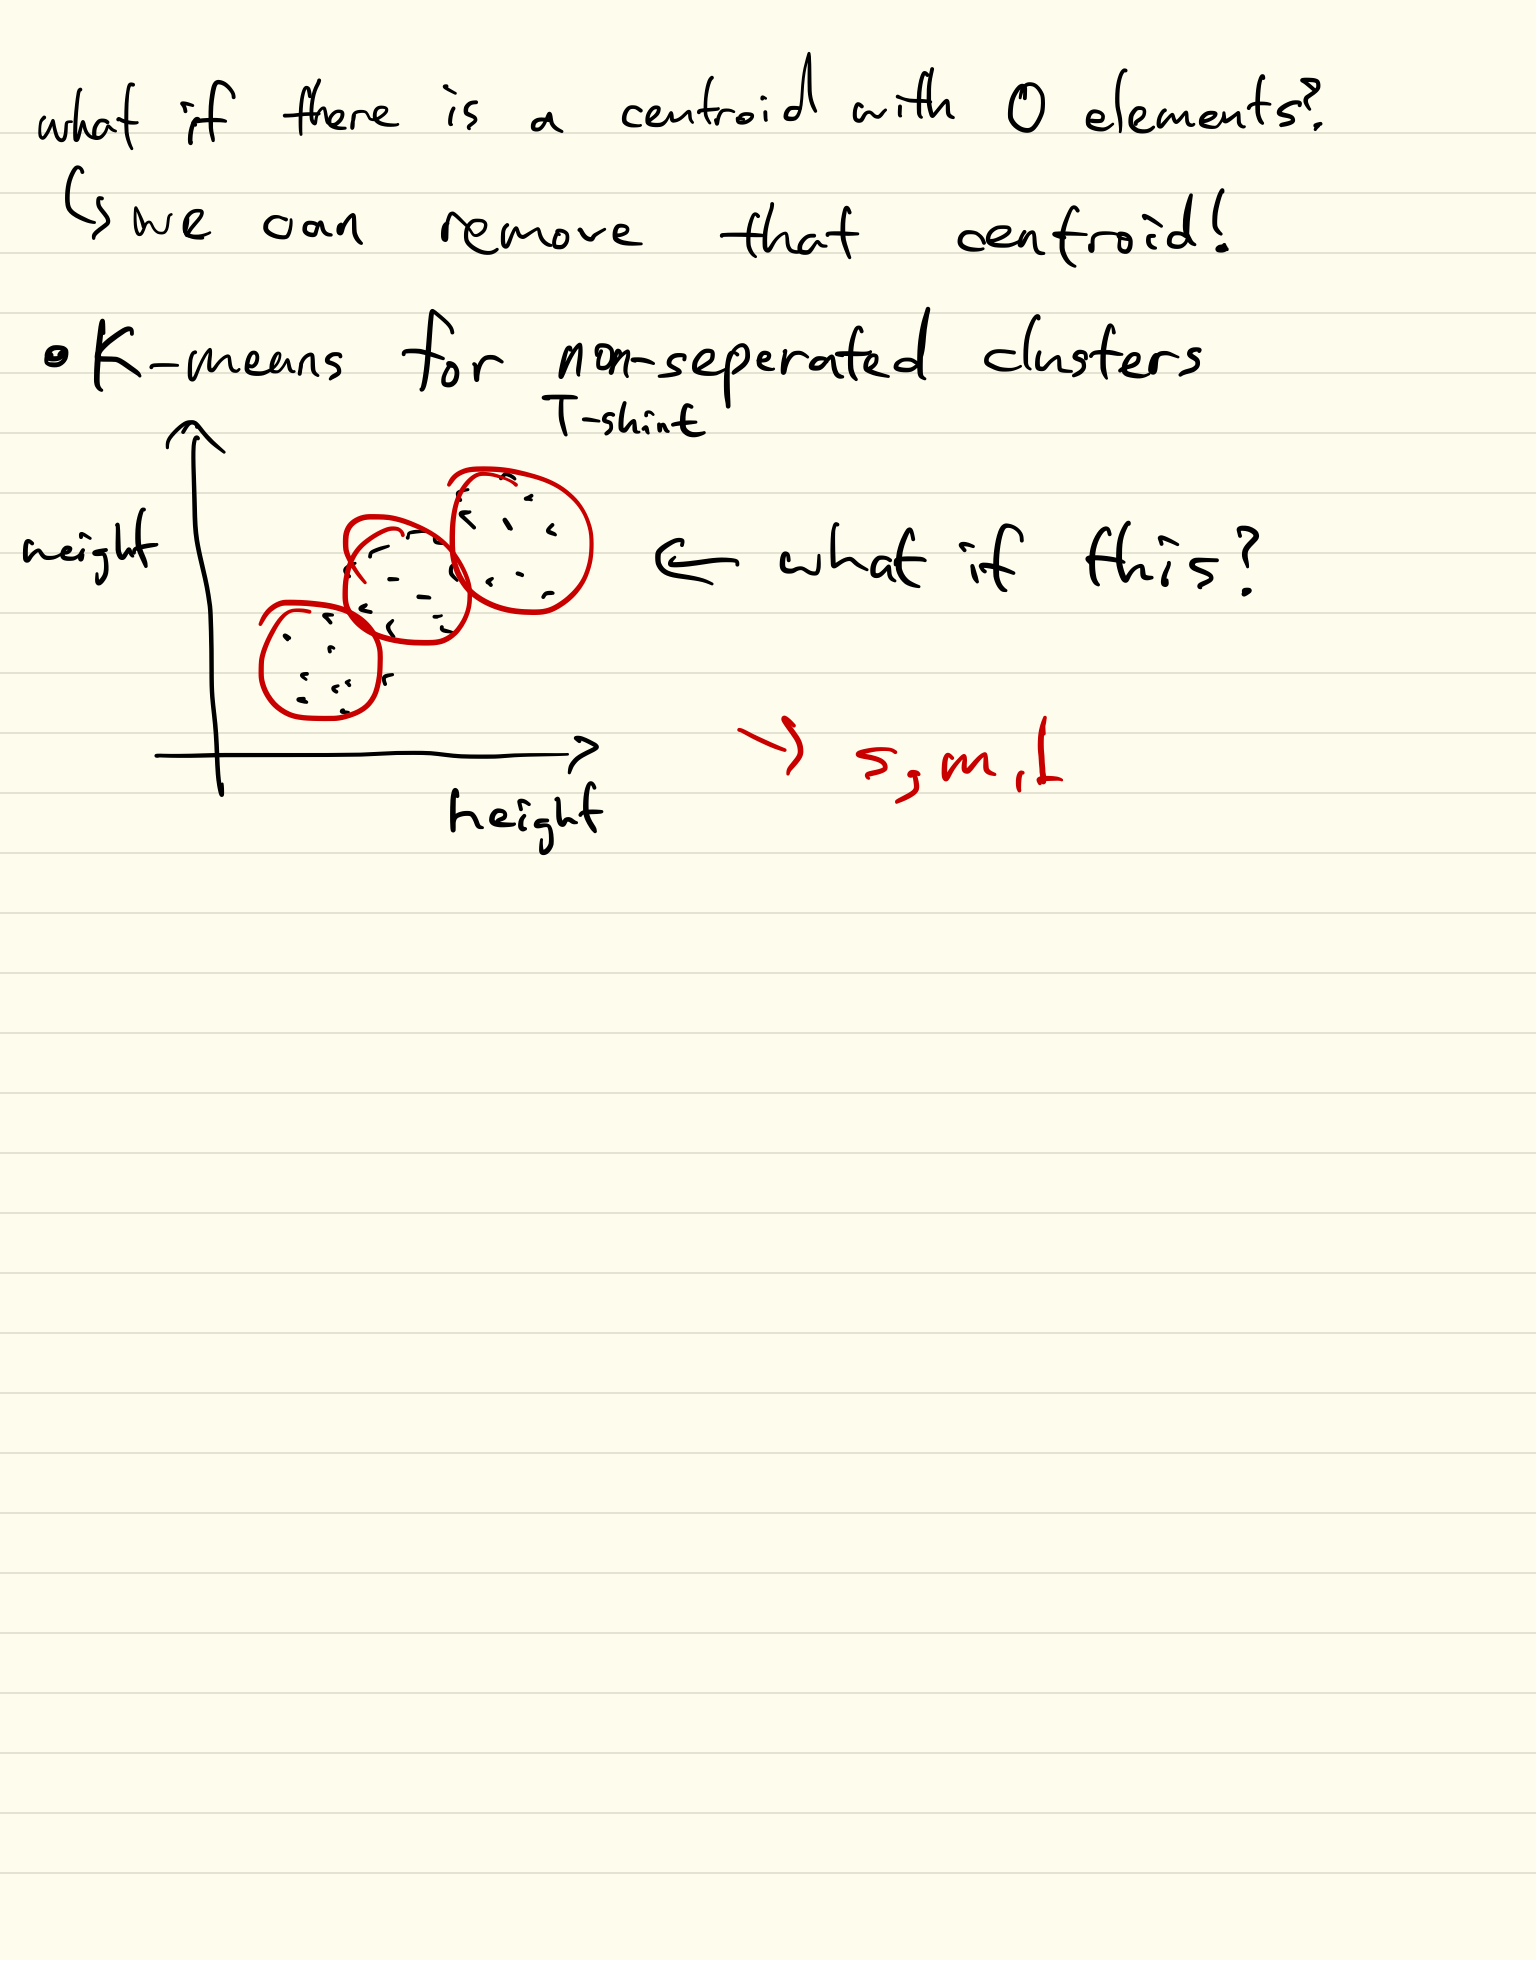 what if there is a centroid with 0 elements?
↳ we can remove that centroid!
• K-means for non-seperated clusters
T-shirt
weight
← what if this?
→ s, m, l
height